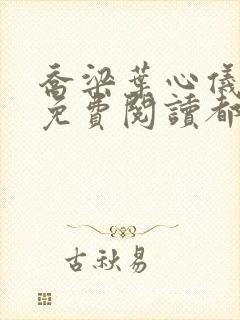 喬梁葉心儀
免費閱讀都
古秋易